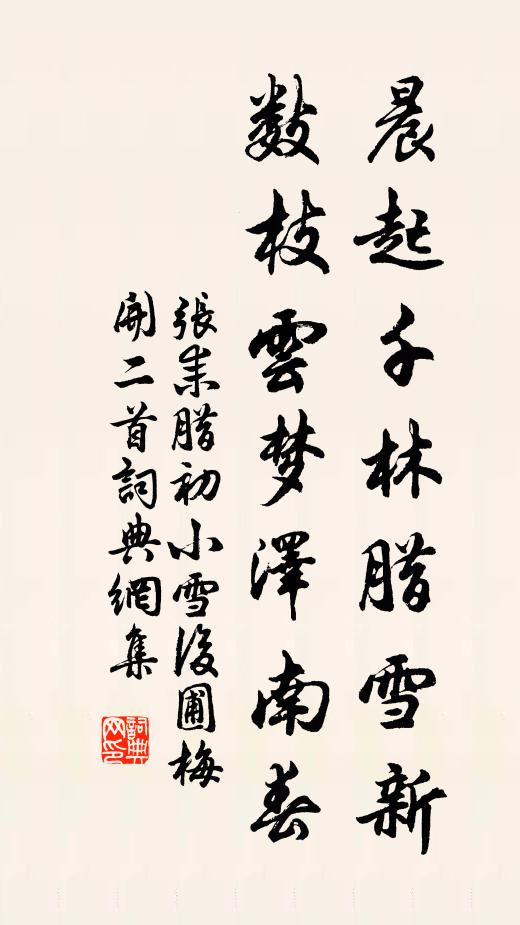 晨起千林腊雪新
数枝雲梦澤南春
張耒腊初小雪後圃梅
開二首詞典網集
詞典
网印